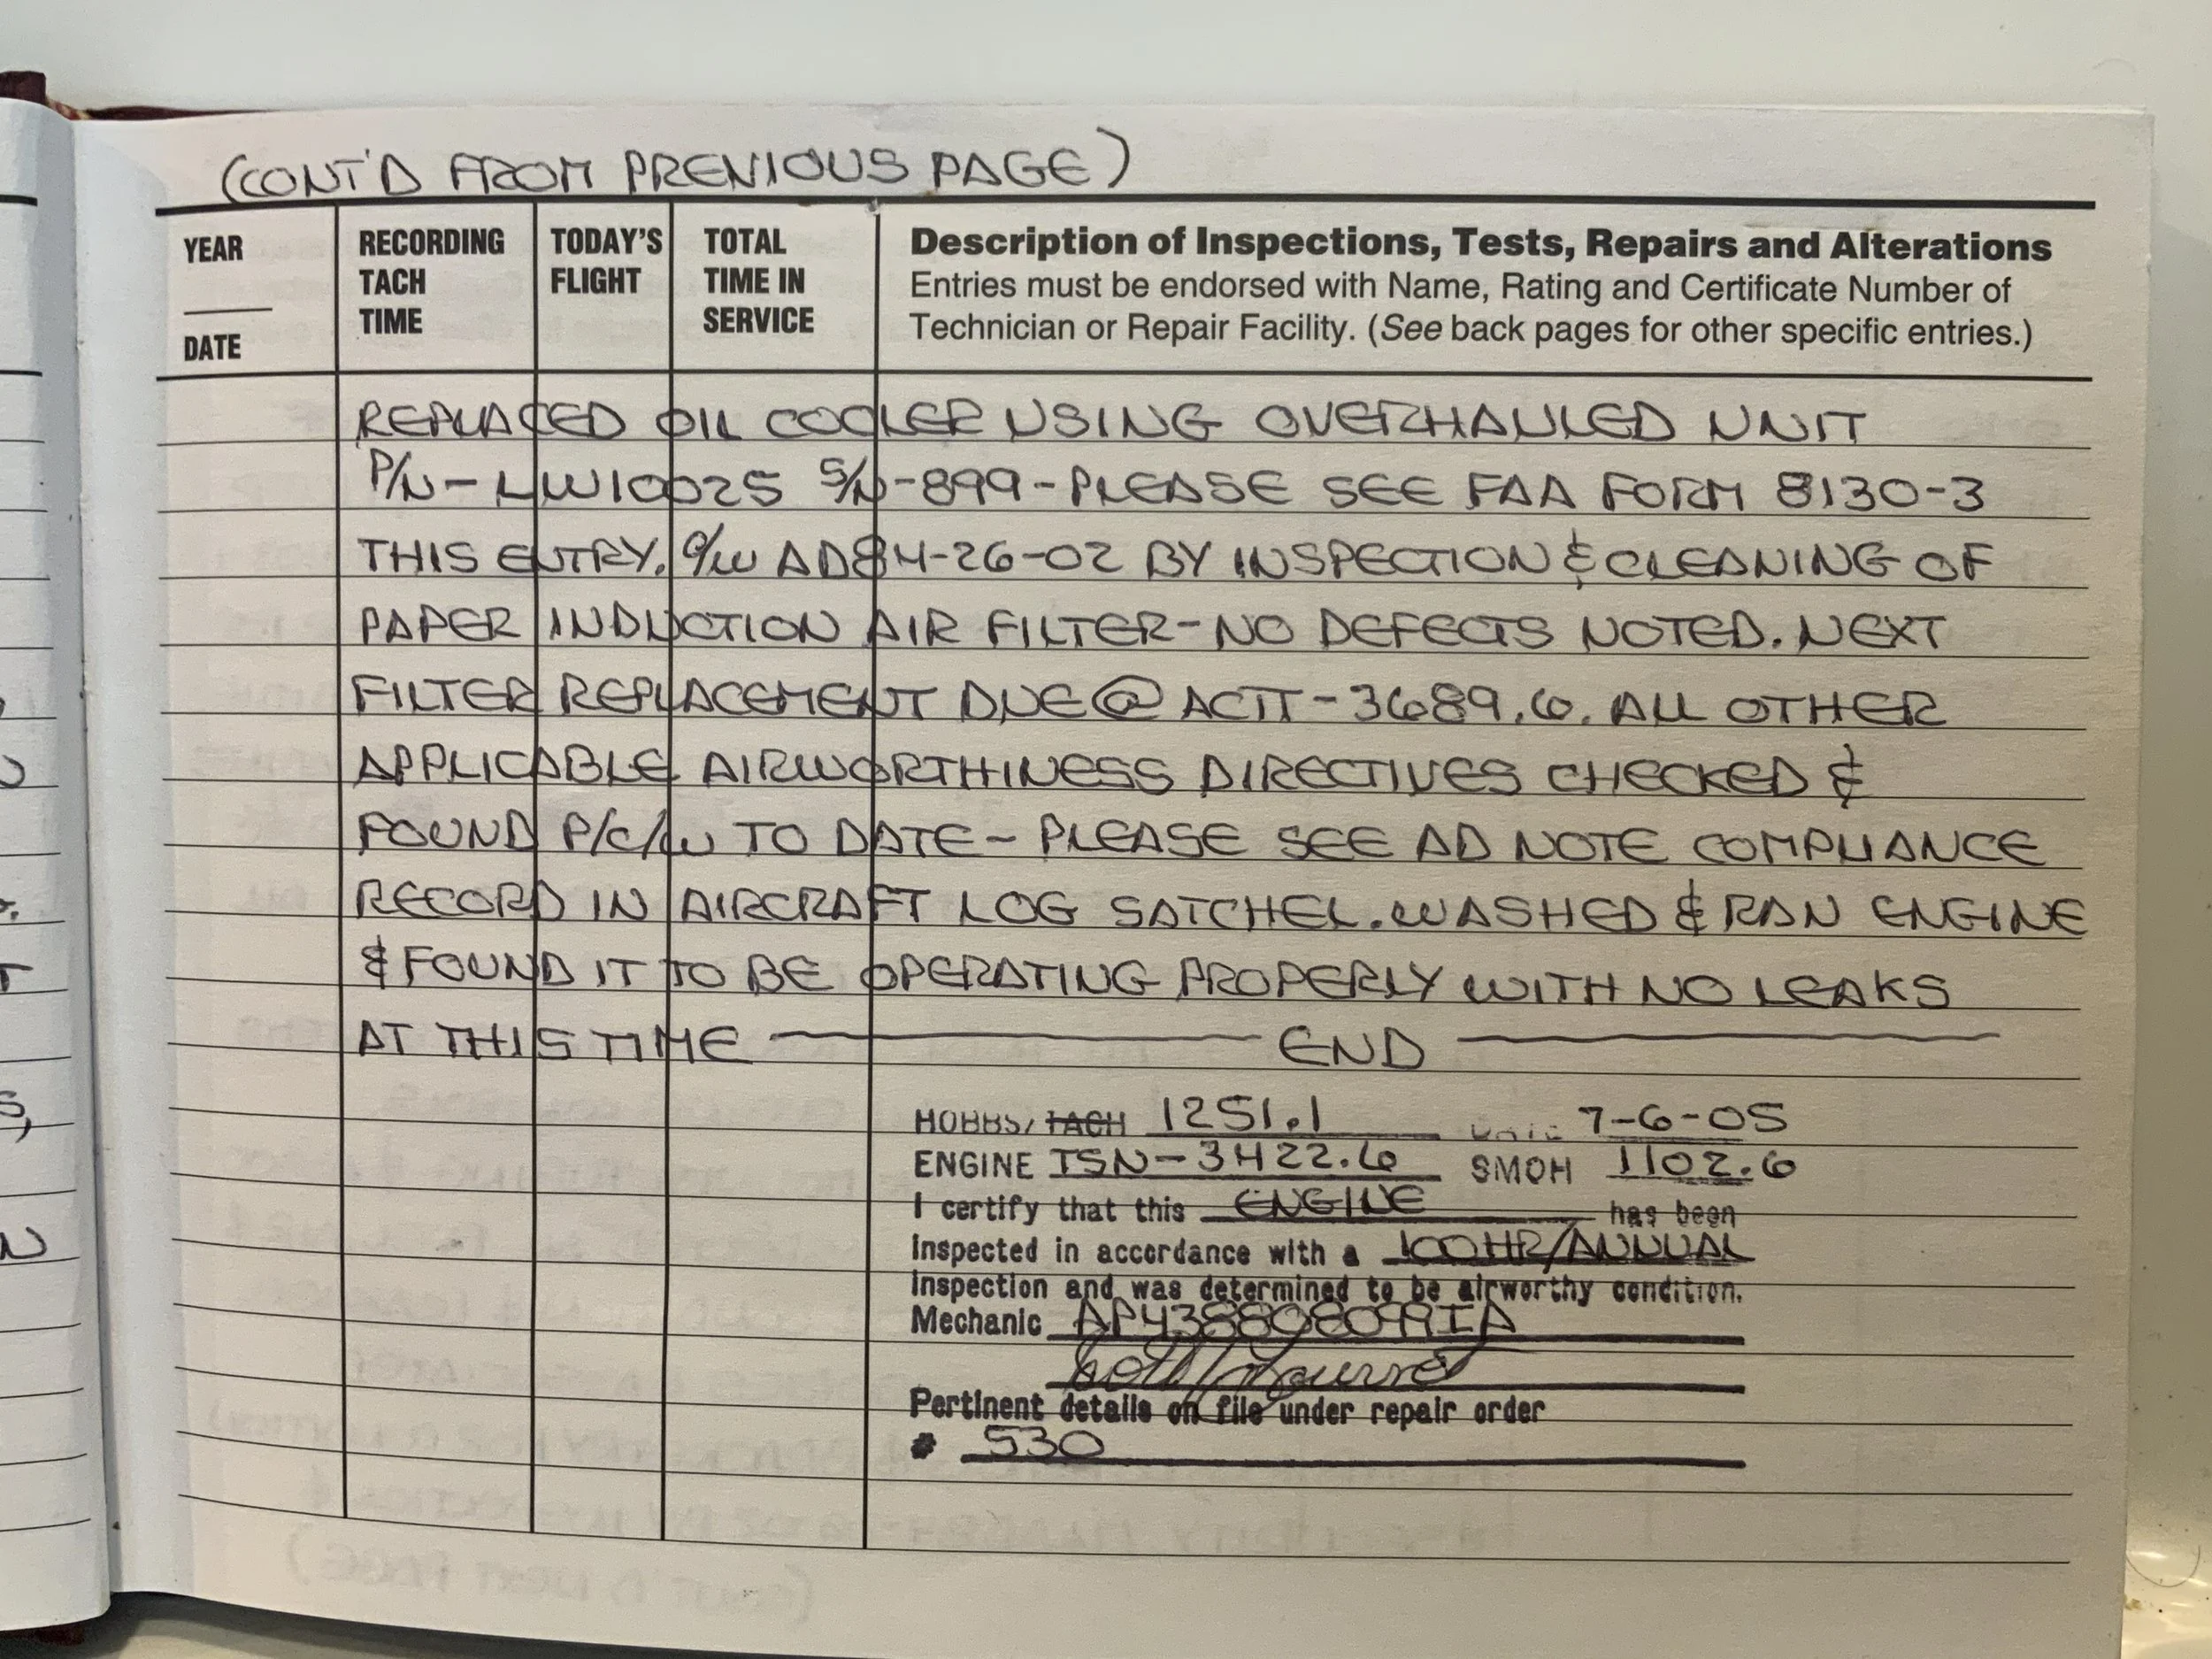 (CONT'D FROM PREVIOUS PAGE)
YEAR
DATE
RECORDING
TACH
TIME
TODAY'S
FLIGHT
TOTAL
TIME IN
SERVICE
Description of Inspections, Tests, Repairs and Alterations
Entries must be endorsed with Name, Rating and Certificate Number of
Technician or Repair Facility. (See back pages for other specific entries.)
REPLACED OIL COOLER USING OVERHAULED UNIT
P/N-LW10025 S/N-899-PLEASE SEE FAA FORM 8130-3
THIS ENTRY. C/W AD84-26-02 BY INSPECTION & CLEANING OF
PAPER INDUCTION AIR FILTER-NO DEFECTS NOTED. NEXT
FILTER REPLACEMENT DUE @ ACTT-3689.6. ALL OTHER
APPLICABLE AIRWORTHINESS DIRECTIVES CHECKED &
FOUND P/C/W TO DATE- PLEASE SEE AD NOTE COMPLIANCE
RECORD IN AIRCRAFT LOG SATCHEL. WASHED & RAN ENGINE
& FOUND IT TO BE OPERATING PROPERLY WITH NO LEAKS
AT THIS TIME ——— END ———
HOBBS/TACH 1251.1 DATE 7-6-05
ENGINE TSN-3422.6 SMOH 1102.6
I certify that this ENGINE has been
Inspected in accordance with a 100HR/ANNUAL
Inspection and was determined to be airworthy condition.
Mechanic AP438808099IA
Pertinent details on file under repair order
# 530